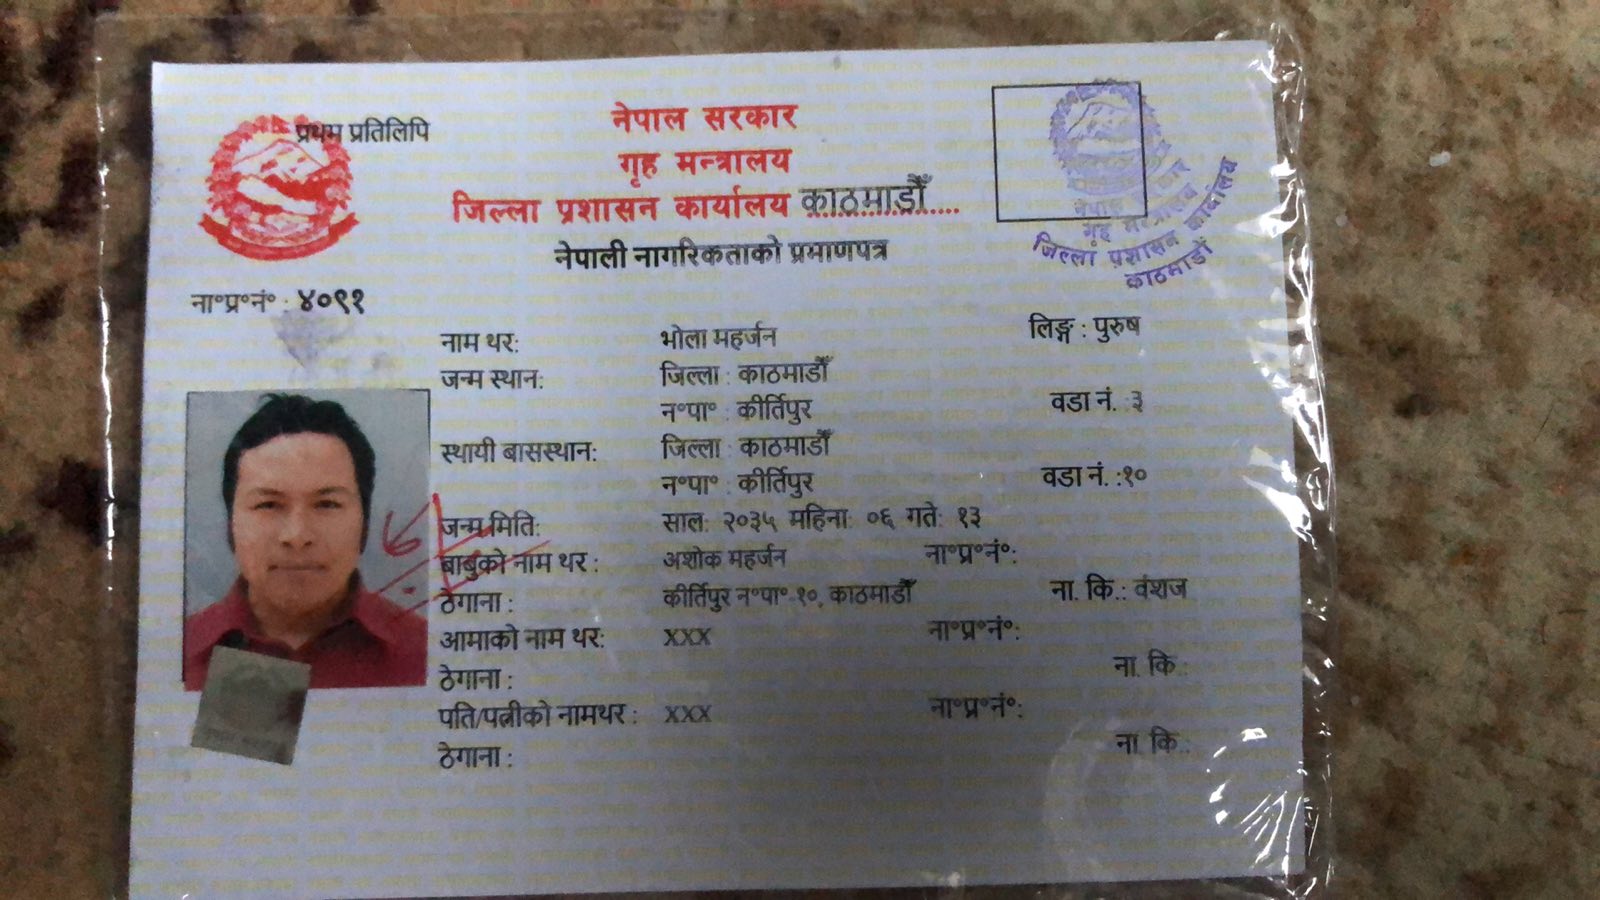 प्रथम प्रतिलिपि
नेपाल सरकार
गृह मन्त्रालय
जिल्ला प्रशासन कार्यालय काठमाडौँ
नेपाली नागरिकताको प्रमाणपत्र
नेपाल सरकार
गृह मन्त्रालय
जिल्ला प्रशासन कार्यालय
काठमाडौं
ना॰प्र॰नं॰ : ४०९१
नाम थर: भोला महर्जन लिङ्ग : पुरुष
जन्म स्थान: जिल्ला : काठमाडौँ
न॰पा॰ : कीर्तिपुर वडा नं. :३
स्थायी बासस्थान: जिल्ला : काठमाडौँ
न॰पा॰ : कीर्तिपुर वडा नं. :१०
जन्म मिति: साल: २०३५ महिना: ०६ गते: १३
बाबुको नाम थर : अशोक महर्जन ना॰प्र॰नं॰:
ठेगाना : कीर्तिपुर न॰पा॰ १०, काठमाडौँ ना. कि.: वंशज
आमाको नाम थर: XXX ना॰प्र॰नं॰:
ठेगाना : ना. कि.:
पति/पत्नीको नामथर : XXX ना॰प्र॰नं॰:
ठेगाना : ना. कि.: